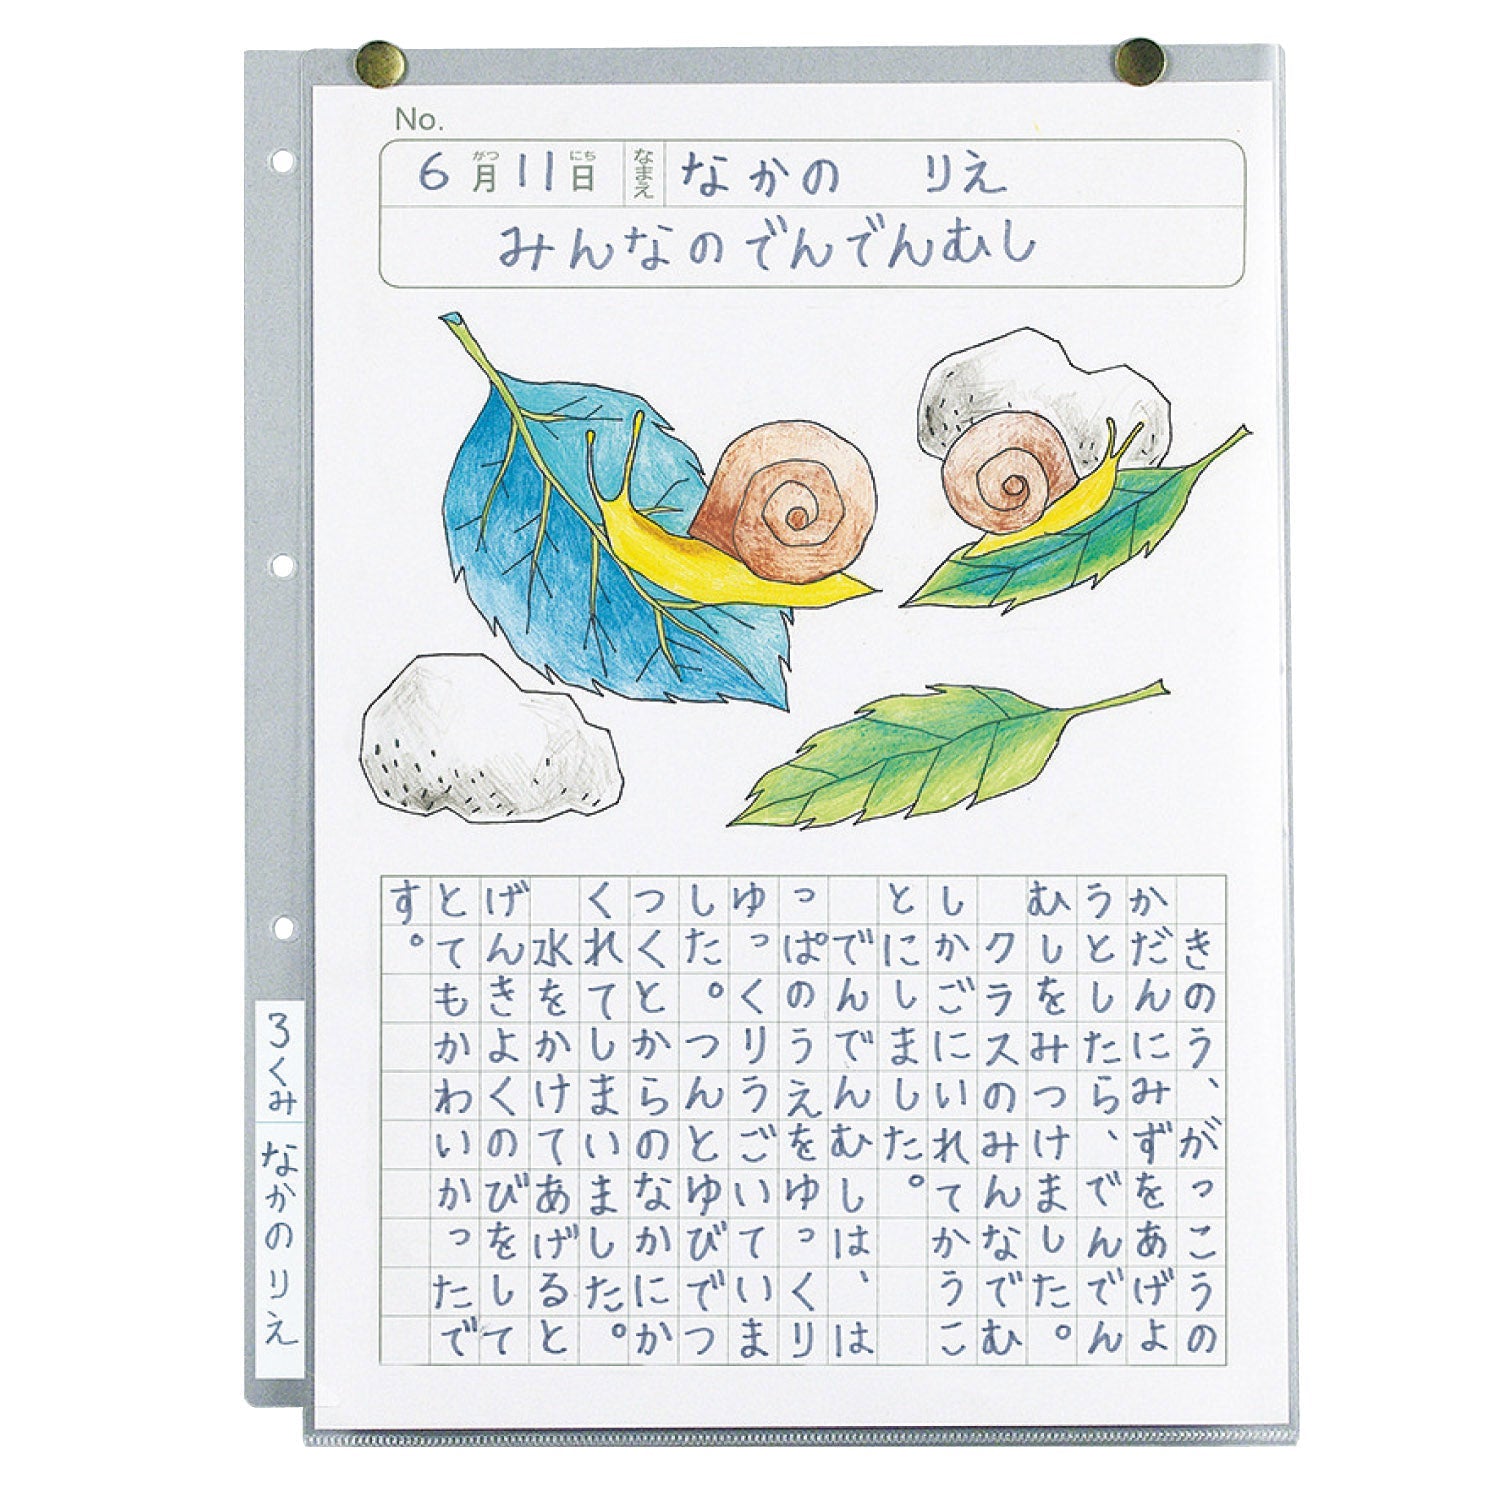 No.
6月11日 なまえ なかの りえ
がつ にち
みんなのでんでんむし
　きのう、がっこうの
かだんにみずをあげよ
うとしたら、でんでん
むしをみつけました。
　クラスのみんなでむ
しかごにいれてかうこ
とにしました。
　でんでんむしは、は
っぱのうえをゆっくり
ゆっくりうごいていま
した。つんとゆびでつ
つくとからのなかにか
くれてしまいました。
　水をかけてあげると
げんきよくのびをして
とてもかわいかったで
す。
3くみ なかの りえ